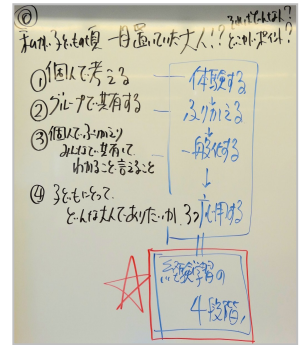 ⓪
私が子どもの頃 一目置いていた大人!?
どこがポイント?
① 個人で考える
② グループで共有する
③ 個人でふりかえり
みんなで共有して
わかること・言えること
④ 子どもにとって
どんな大人でありたいか、3つ
体験する
ふりかえる
一般化する
↓
応用する
経験学習の
4段階!